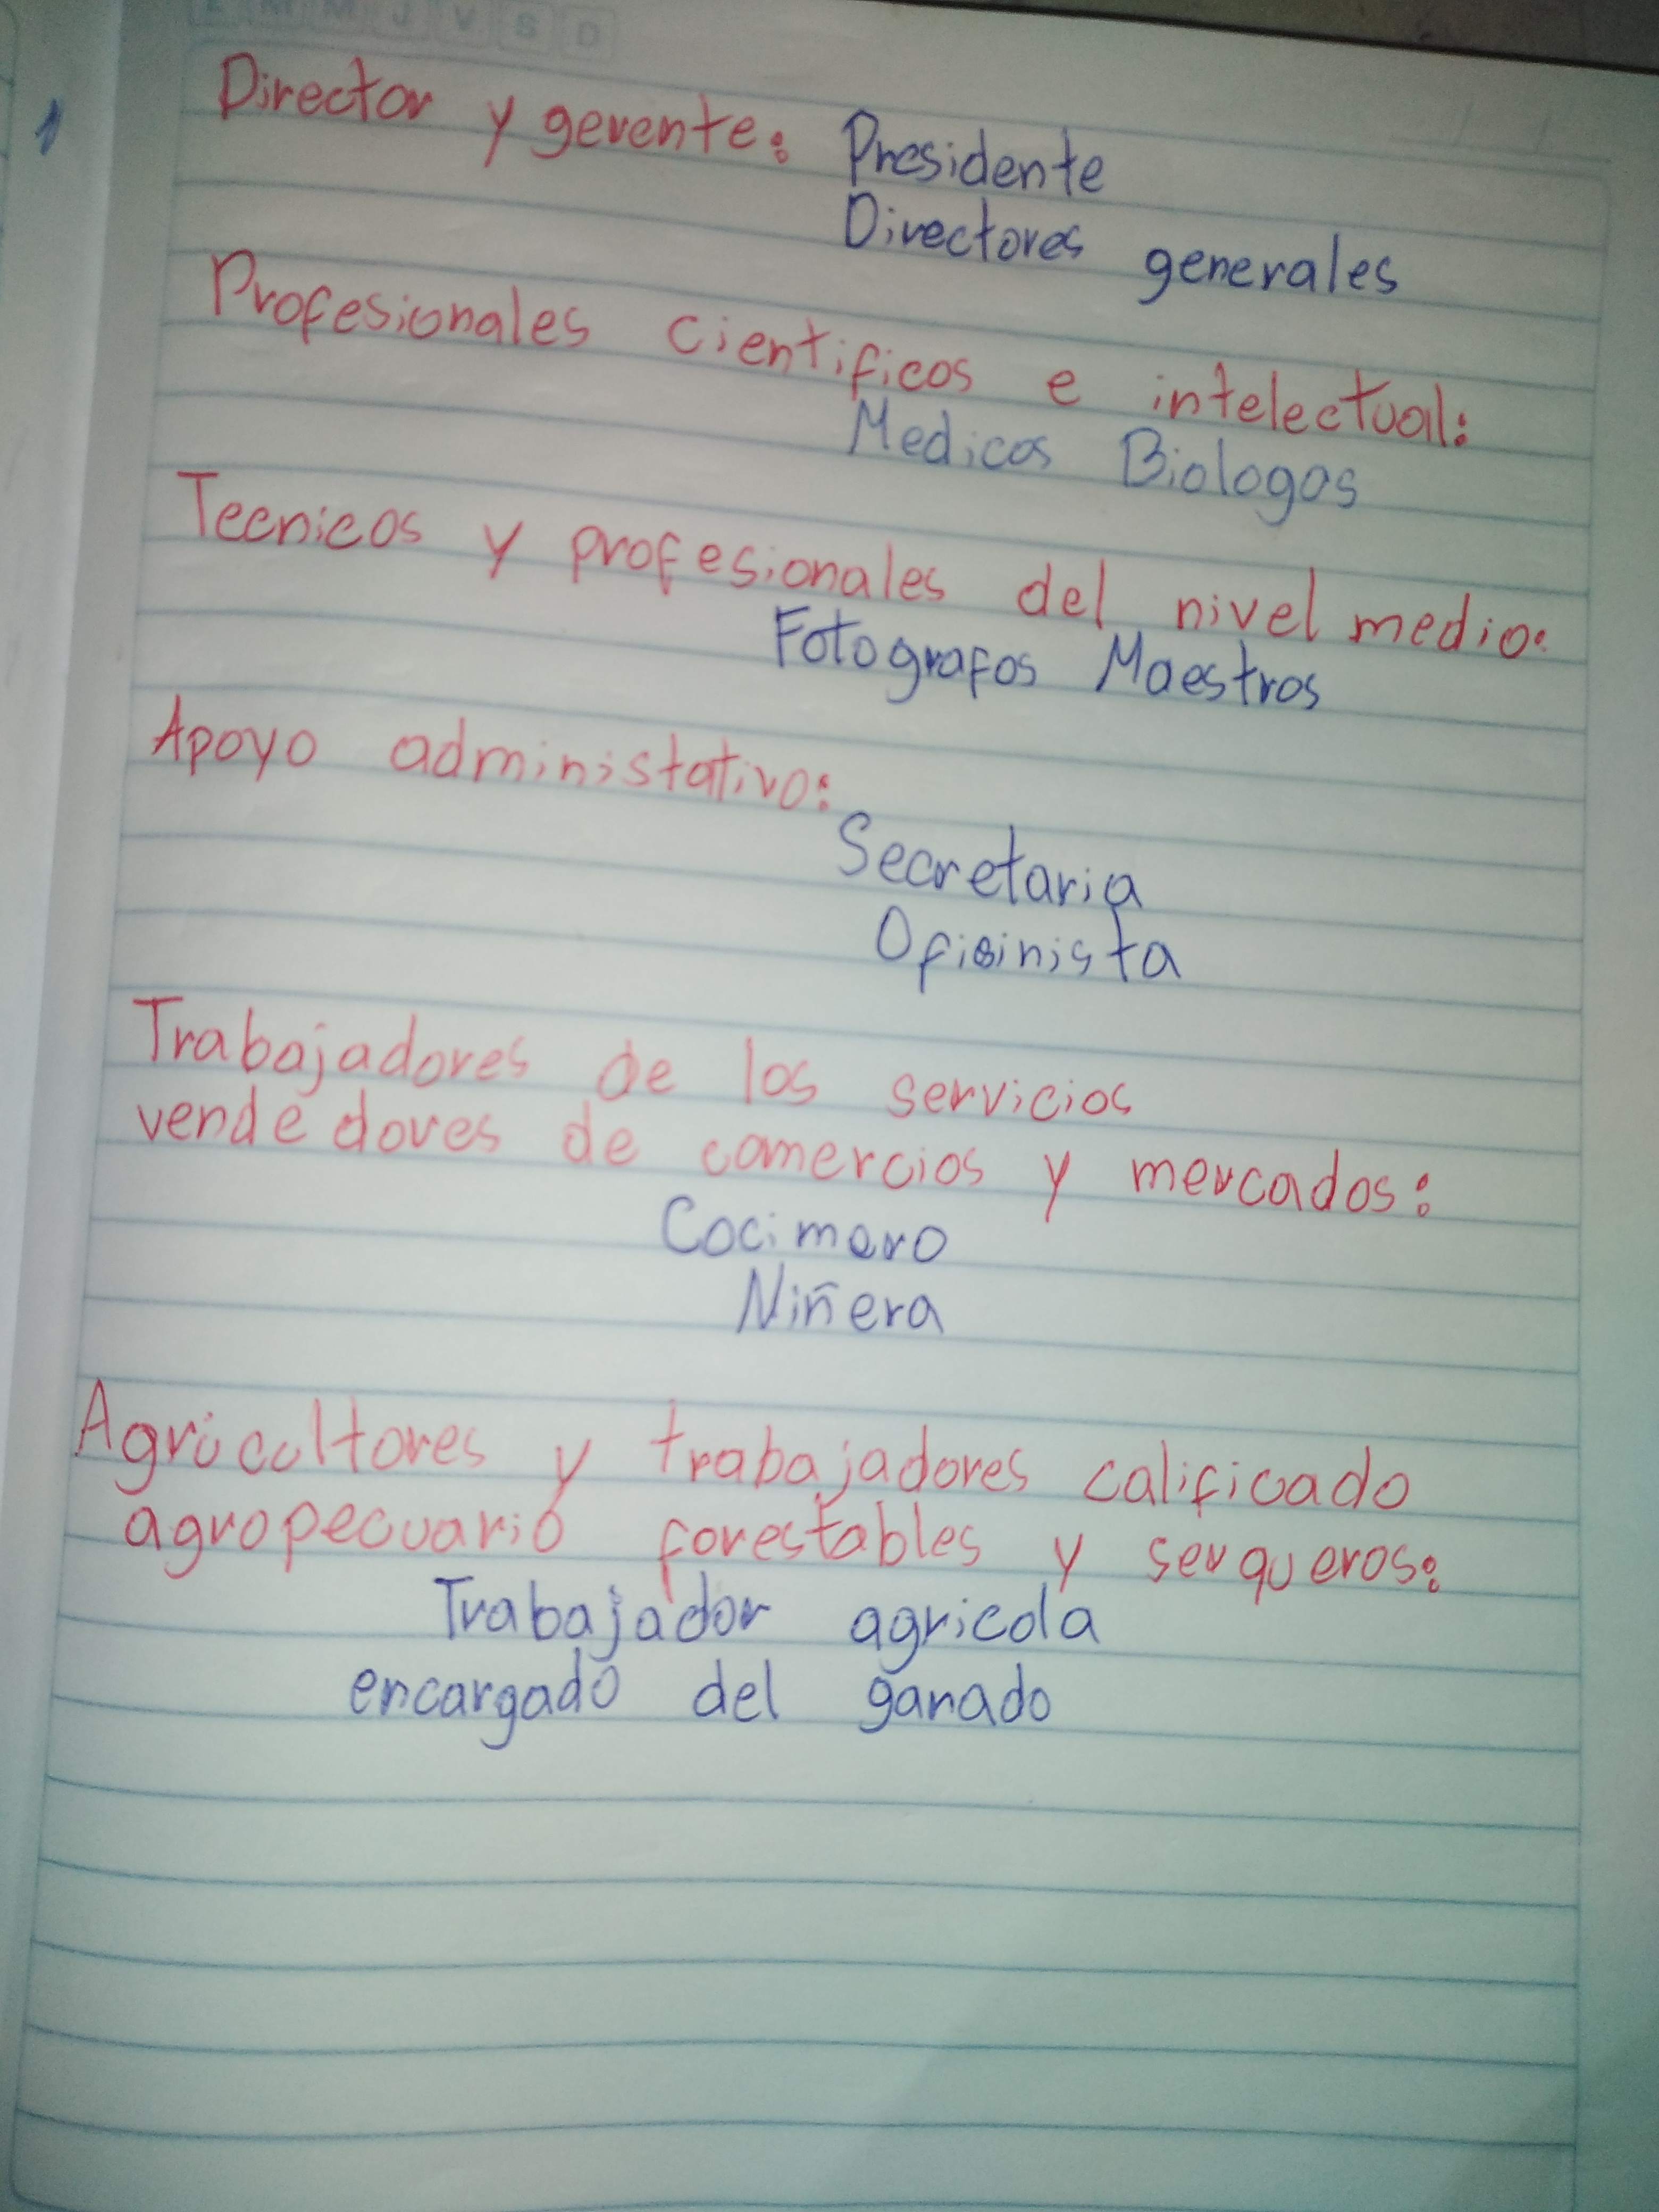 L M M J V S D
Director y gerente: Presidente
Directores generales
Profesionales cientificos e intelectual:
Medicos Biologos
Tecnicos y profesionales del nivel medio:
Fotografos Maestros
Apoyo administativo:
Secretaria
Ofisinista
Trabajadores de los servicios
vendedores de comercios y mercados:
Cocimero
Niñera
Agricultores y trabajadores calificado
agropecuario forestables y serqueros:
Trabajador agricola
encargado del ganado